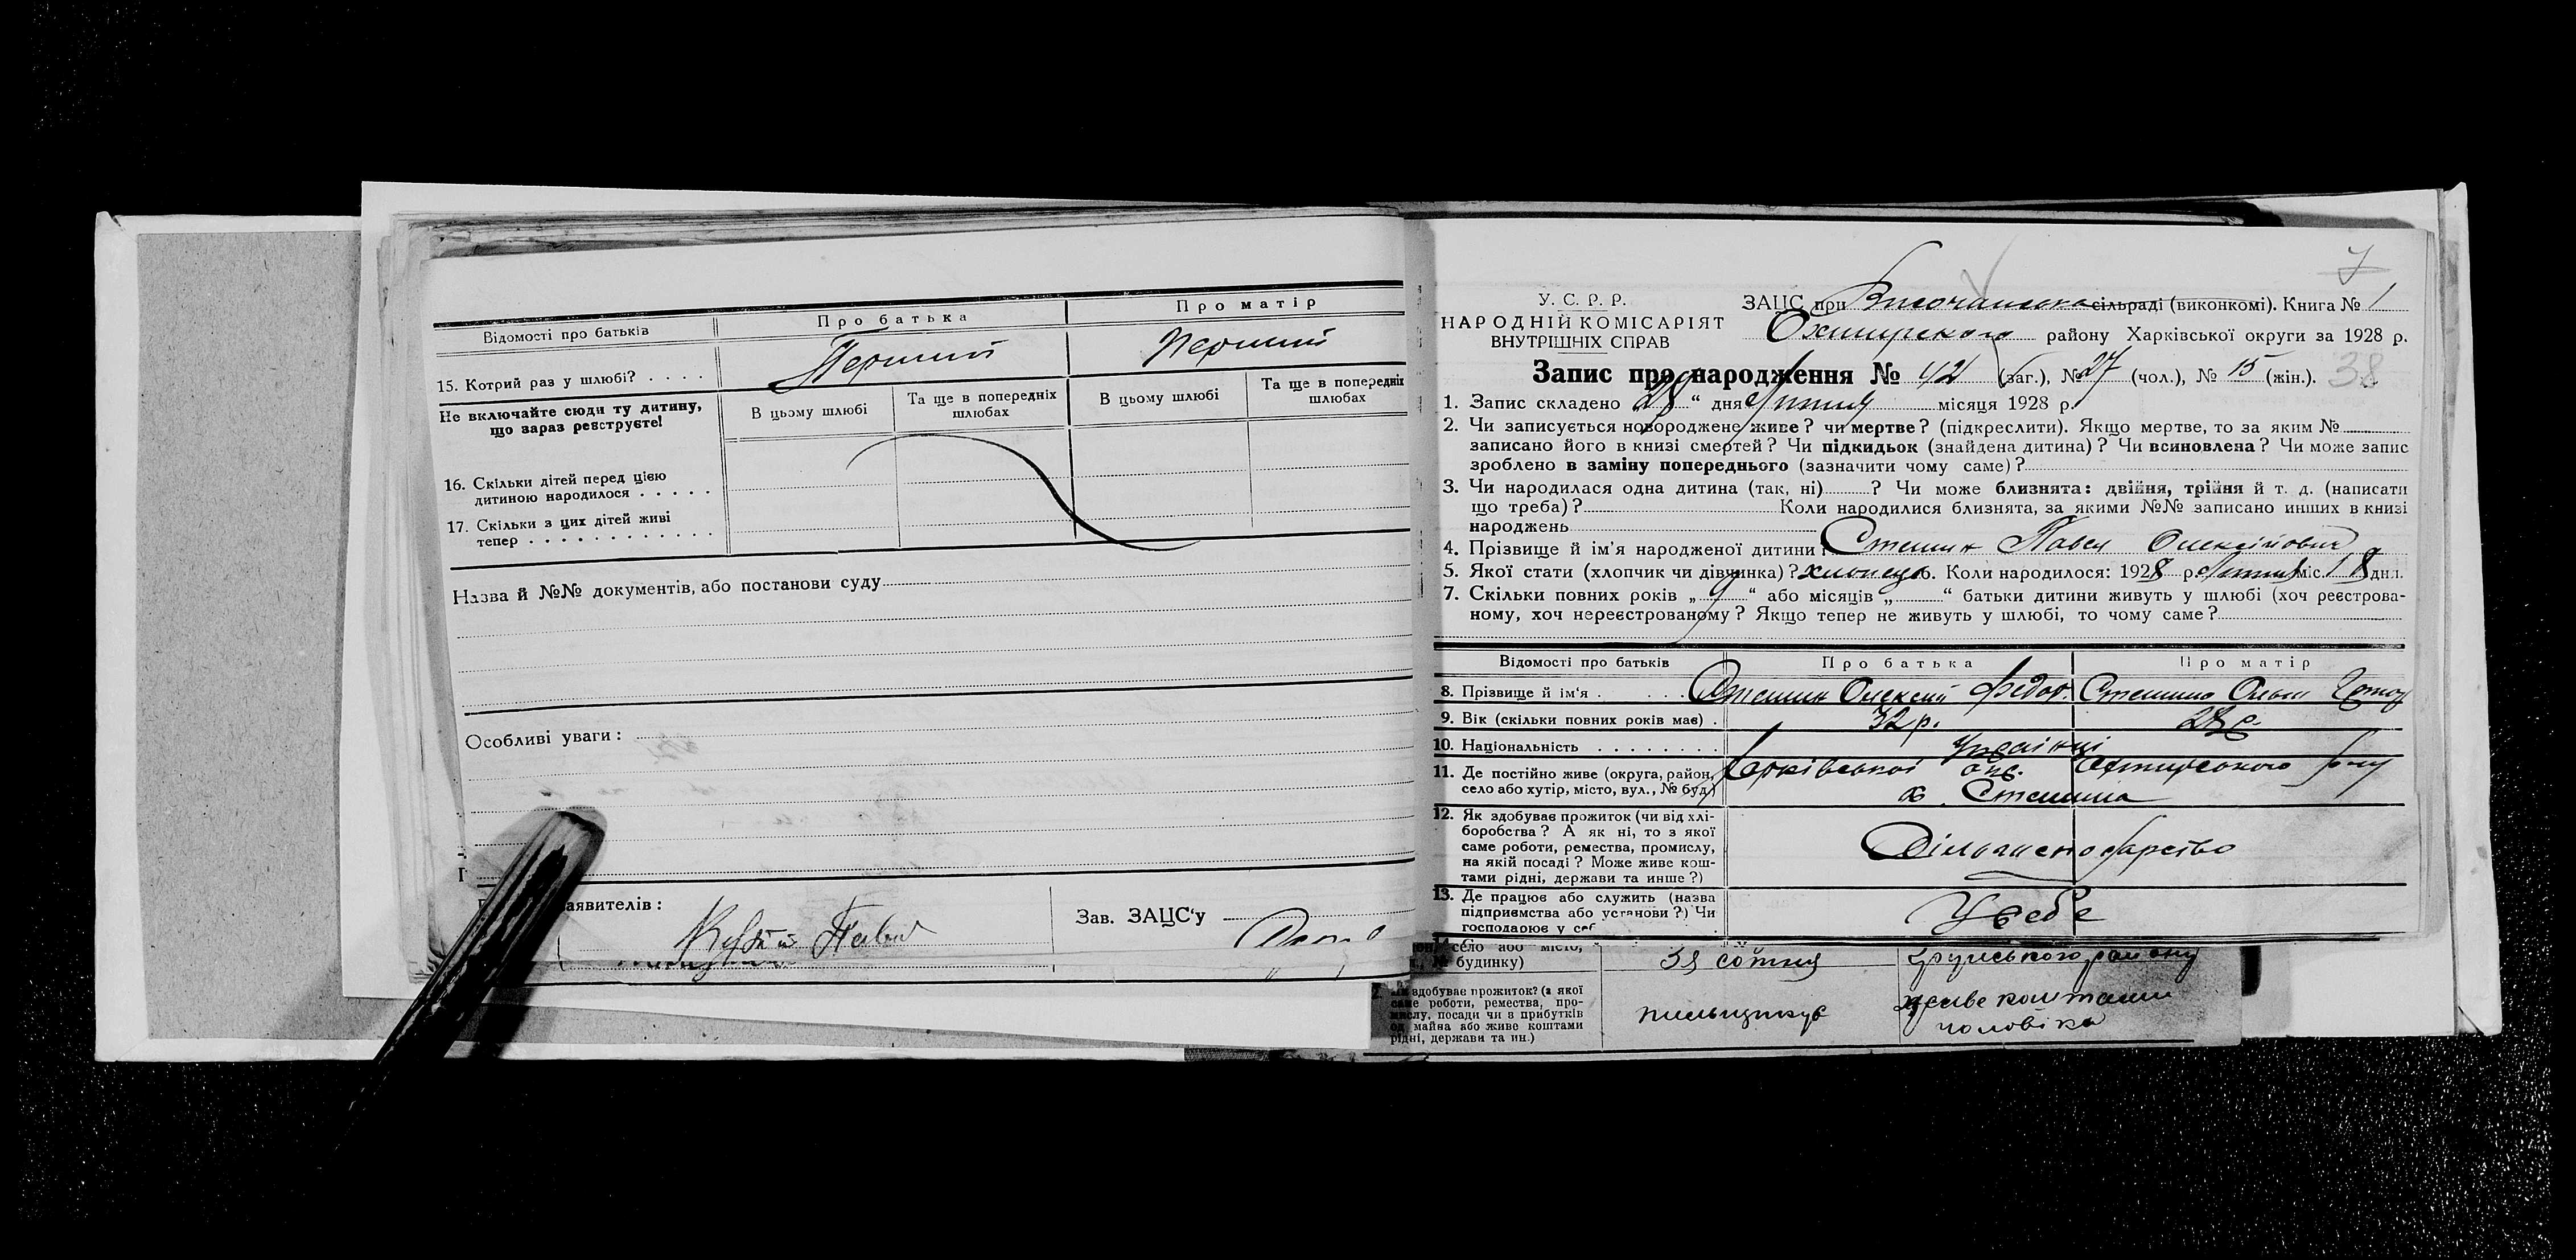 Відомості про батьків
Про батька
Про матір
15. Котрий раз у шлюбі? . . . .
Перший
Перший
Не включайте сюди ту дитину,
що зараз реєструєте!
В цьому шлюбі
Та ще в попередніх
шлюбах
В цьому шлюбі
Та ще в попередніх
шлюбах
16. Скільки дітей перед цією
дитиною народилося . . . . .
17. Скільки з цих дітей живі
тепер . . . . . . . . . . . .
Назва й №№ документів, або постанови суду
Особливі уваги:
аявителів:
Зав. ЗАЦС'у
7
У. С. Р. Р.
НАРОДНІЙ КОМІСАРІЯТ
ВНУТРІШНІХ СПРАВ
ЗАЦС при сільраді (виконкомі). Книга № 1
району Харківської округи за 1928 р.
Запис про народження № 42 (заг.), № 27 (чол.), № 15 (жін.). 38
1. Запис складено „28“ дня місяця 1928 р.
2. Чи записується новороджене живе? чи мертве? (підкреслити). Якщо мертве, то за яким №
записано його в книзі смертей? Чи підкидьок (знайдена дитина)? Чи всиновлена? Чи може запис
зроблено в заміну попереднього (зазначити чому саме)?
3. Чи народилася одна дитина (так, ні) ? Чи може близнята: двійня, трійня й т. д. (написати
що треба)? Коли народилися близнята, за якими №№ записано инших в книзі
народжень
4. Прізвище й ім'я народженої дитини Павел Олексійович
5. Якої стати (хлопчик чи дівчинка)? хлопець 6. Коли народилося: 1928 р. міс. 18 дня.
7. Скільки повних років „9“ або місяців „ “ батьки дитини живуть у шлюбі (хоч реєстрова-
ному, хоч нереєстрованому? Якщо тепер не живуть у шлюбі, то чому саме?
Відомості про батьків
Про батька
Про матір
8. Прізвище й ім'я . . . .
Олексій Федор.
9. Вік (скільки повних років має) .
32 р.
28 р.
10. Національність . . . . . . . .
Українці
11. Де постійно живе (округа, район,
село або хутір, місто, вул., № буд.)
Харківської окр.
х.
12. Як здобуває прожиток (чи від хлі-
боробства? А як ні, то з якої
саме роботи, ремества, промислу,
на якій посаді? Може живе кош-
тами рідні, держави та инше?)
13. Де працює або служить (назва
підприємства або установи?) Чи
господарює у се
У себе
село або місто,
будинку)
сотня
району
здобуває прожиток? (з якої
роботи, ремества, про-
мислу, посади чи з прибутків
од майна або живе коштами
рідні, держави та ин.)
живе коштами
чоловіка